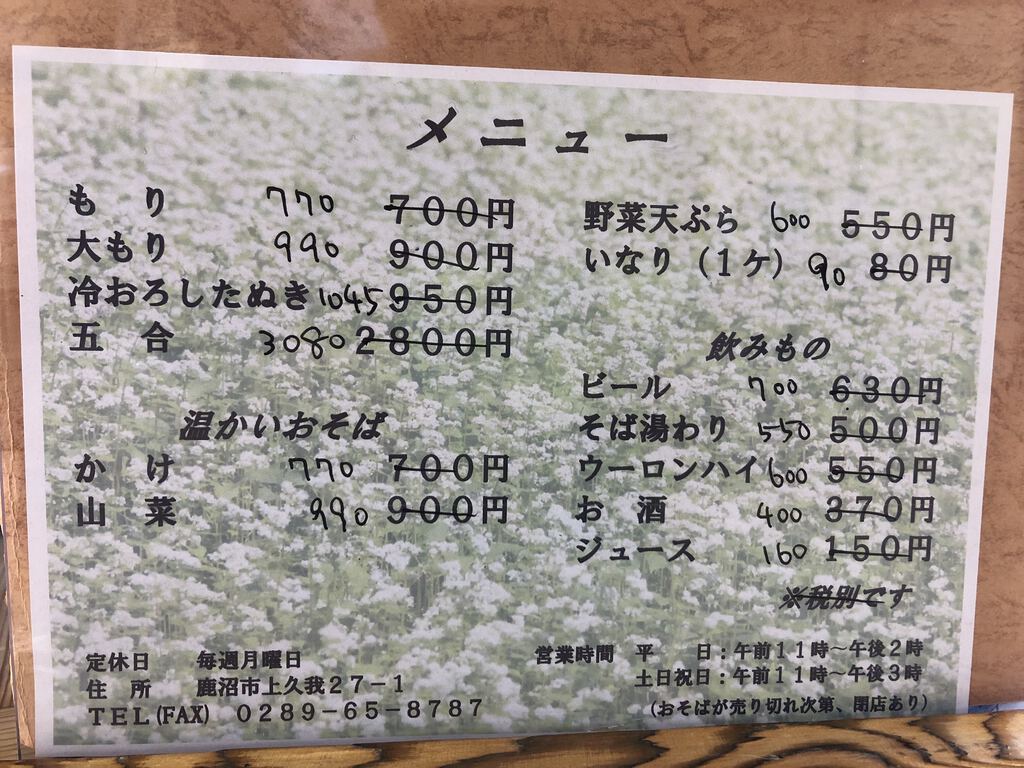 メニュー
もり 770 700円
大もり 990 900円
冷おろしたぬき 1045 950円
五合 3080 2800円
温かいおそば
かけ 770 700円
山菜 990 900円
野菜天ぷら 600 550円
いなり（1ケ） 90 80円
飲みもの
ビール 700 630円
そば湯わり 550 500円
ウーロンハイ 600 550円
お酒 400 370円
ジュース 160 150円
※税別です
定休日 毎週月曜日
住所 鹿沼市上久我27-1
TEL(FAX) 0289-65-8787
営業時間 平日：午前11時～午後2時
土日祝日：午前11時～午後3時
（おそばが売り切れ次第、閉店あり）